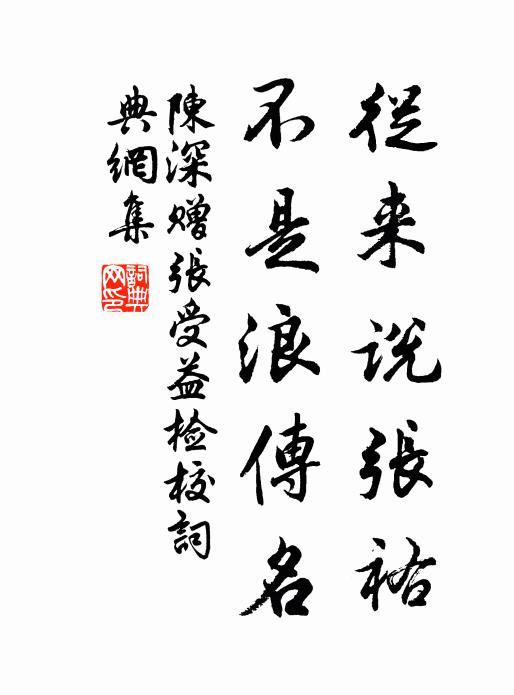 從来説張祐
不是浪傳名
陳深贈張受益檢校詞
典網集
詞典
网印